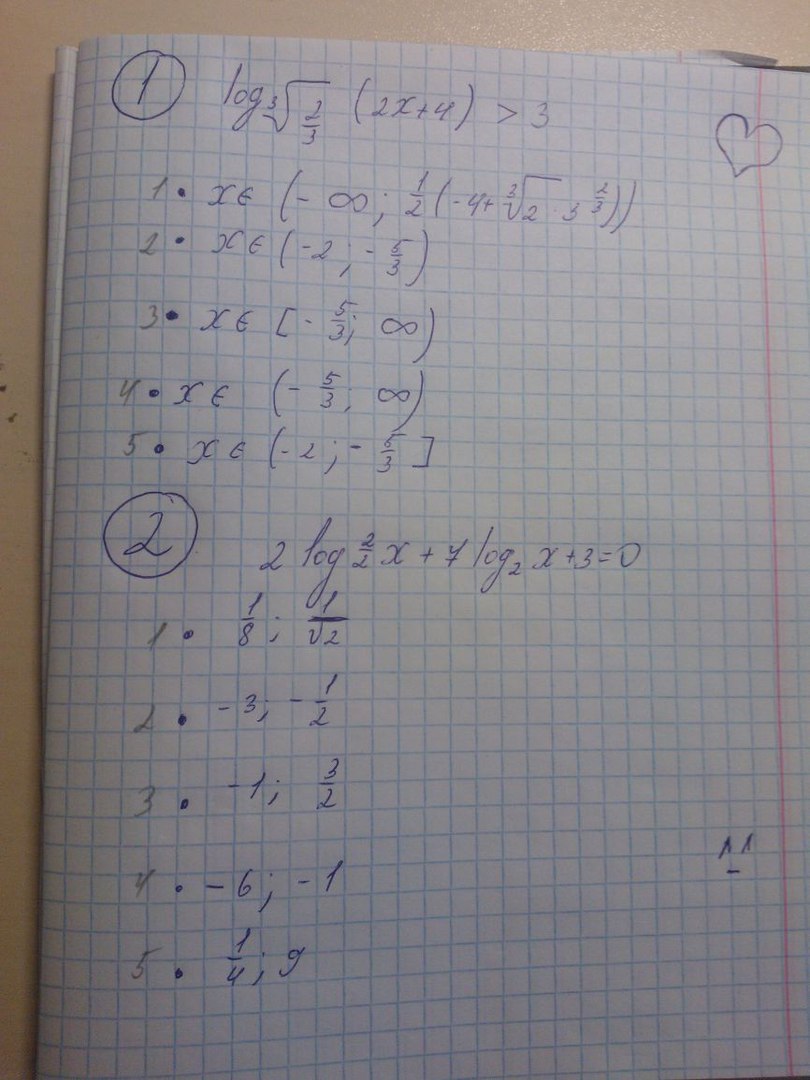 1 log ∛(2/3) (2x+4) > 3
1 • x ∈ (- ∞; 1/2 (-4+ ∛2 · 3^(2/3)))
2 • x ∈ (-2; -5/3)
3 • x ∈ [-5/3; ∞)
4 • x ∈ (-5/3; ∞)
5 • x ∈ (-2; -5/3]
2 2 log²₂ x + 7 log₂ x + 3 = 0
1 • 1/8; 1/√2
2 • -3; -1/2
3 • -1; 3/2
4 • -6; -1
5 • 1/4; 9